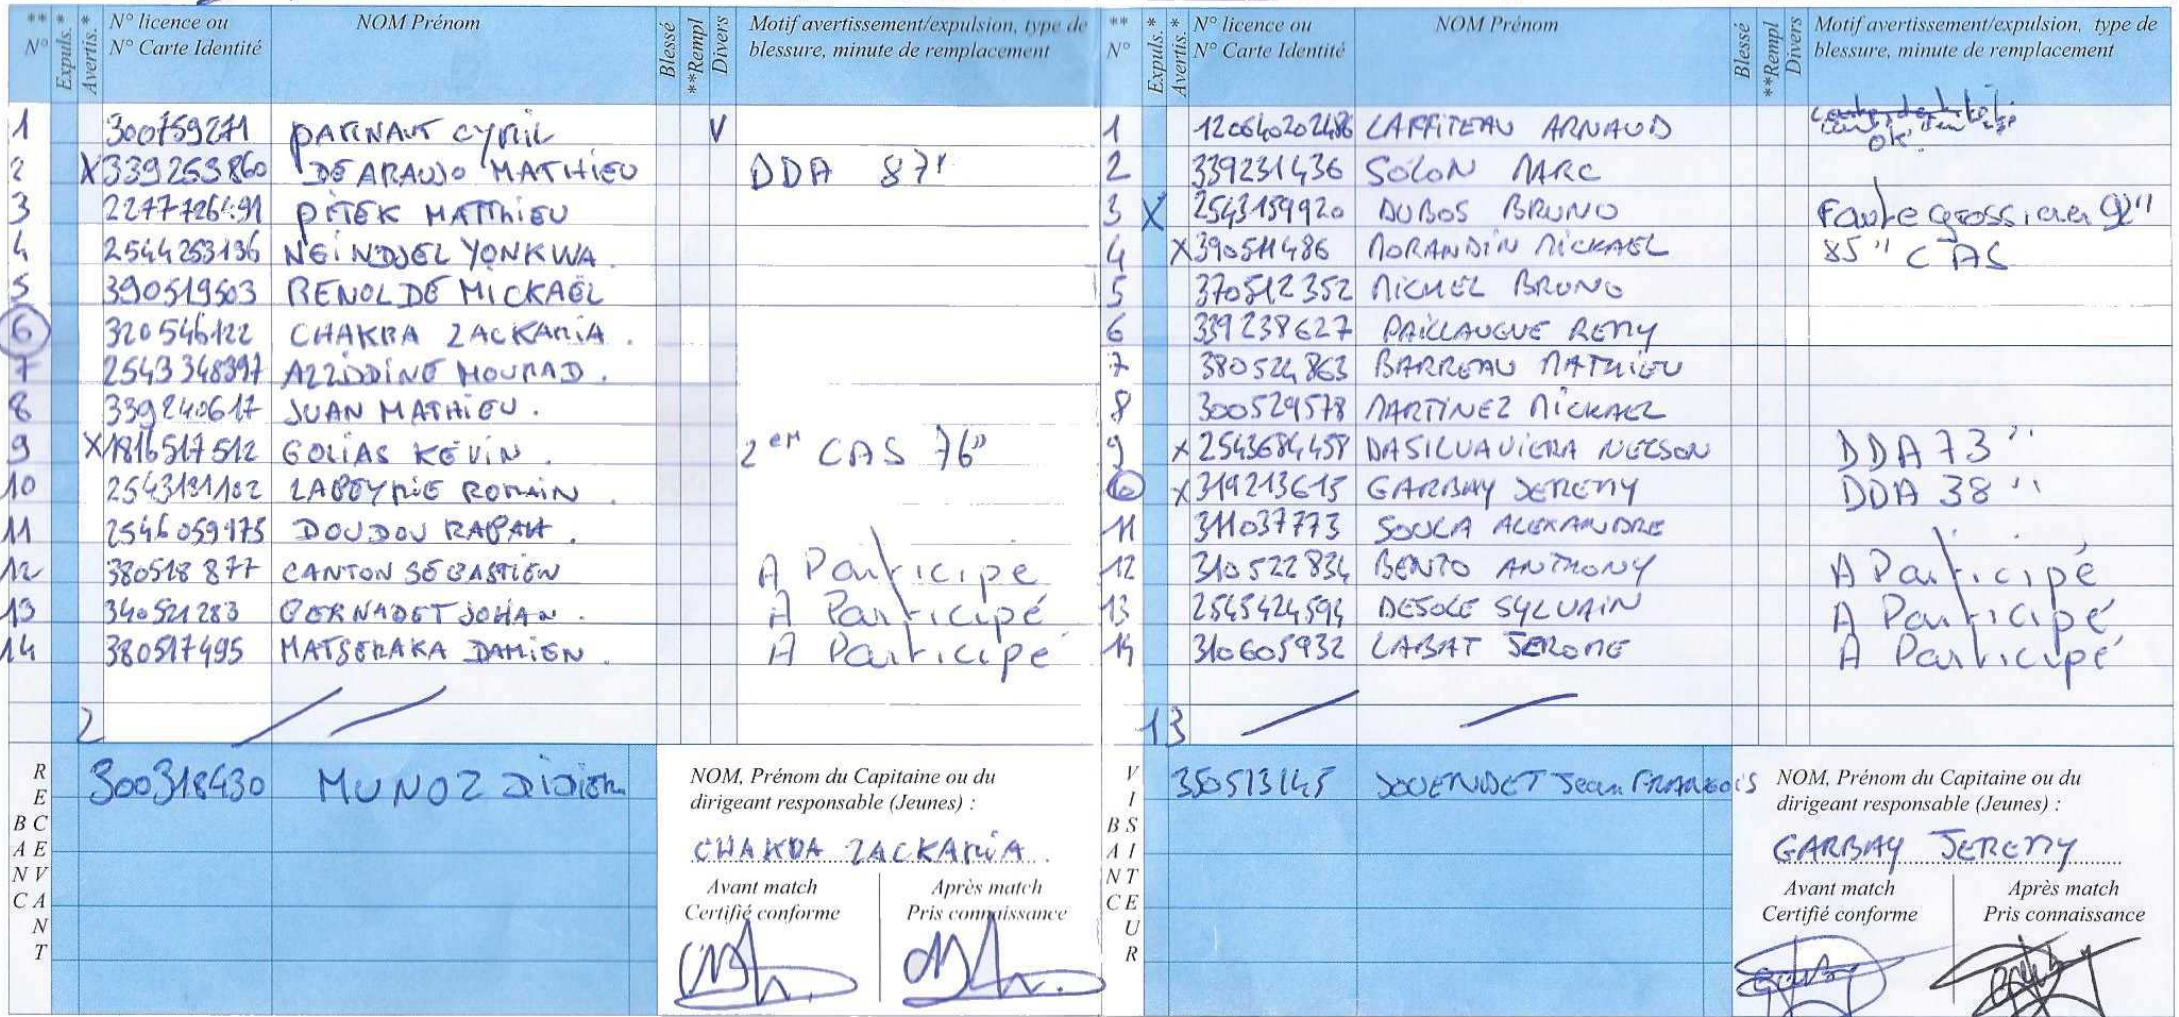 ** N° Expuls. * Avertis. * N° licence ou N° Carte Identité NOM Prénom Blessé **Rempl Divers Motif avertissement/expulsion, type de blessure, minute de remplacement
1 300759271 PARINAUT CYRIL V
2 X 339253860 DE ARAUJO MATHIEU DDA 87'
3 2277726491 PITEK MATTHIEU
4 2544253136 NEINDJEL YONKWA
5 390519503 RENOLDE MICKAËL
6 320546122 CHAKRA ZACKARIA
7 2543348397 AZZIDDINE MOURAD
8 339240617 JUAN MATHIEU
9 X 1816517512 GOLIAS KÉVIN 2em CAS 76"
10 2543131102 LAPEYRIE ROMAIN
11 2546059175 DOUDOU RABAH
12 380518877 CANTON SÉBASTIEN A Participé
13 340521283 BERNADET JOHAN A Participé
14 380517495 MATSERAKA DAMIEN A Participé
2
RECEVANT BANC
300318430 MUNOZ Didier
NOM, Prénom du Capitaine ou du dirigeant responsable (Jeunes) :
CHAKRA ZACKARIA
Avant match Certifié conforme
Après match Pris connaissance
** N° Expuls. * Avertis. * N° licence ou N° Carte Identité NOM Prénom Blessé **Rempl Divers Motif avertissement/expulsion, type de blessure, minute de remplacement
1 120640202486 LAFFITEAU ARNAUD OK
2 339231436 SOLON MARC
3 X 2543159920 DUBOS BRUNO Faute grossière 92"
4 X 390511486 MORANDIN MICKAEL 85" CAS
5 370512352 MICHEL BRUNO
6 339238627 PAILLAUGUE REMY
7 380524863 BARREAU MATHIEU
8 300529578 MARTINEZ MICKAEL
9 X 2543684458 DASILVAVIERA NELSON DDA 73"
10 X 319213615 GARBAY JEREMY DDA 38"
11 311037773 SOULA ALEXANDRE
12 310522834 BENTO ANTHONY A Participé
13 2545424594 DESOLE SYLVAIN A Participé
14 310605932 LABAT JEROME A Participé
1 3
VISITEUR BANC
350513145 JOUENDET Jean FRANCOIS
NOM, Prénom du Capitaine ou du dirigeant responsable (Jeunes) :
GARBAY JEREMY
Avant match Certifié conforme
Après match Pris connaissance